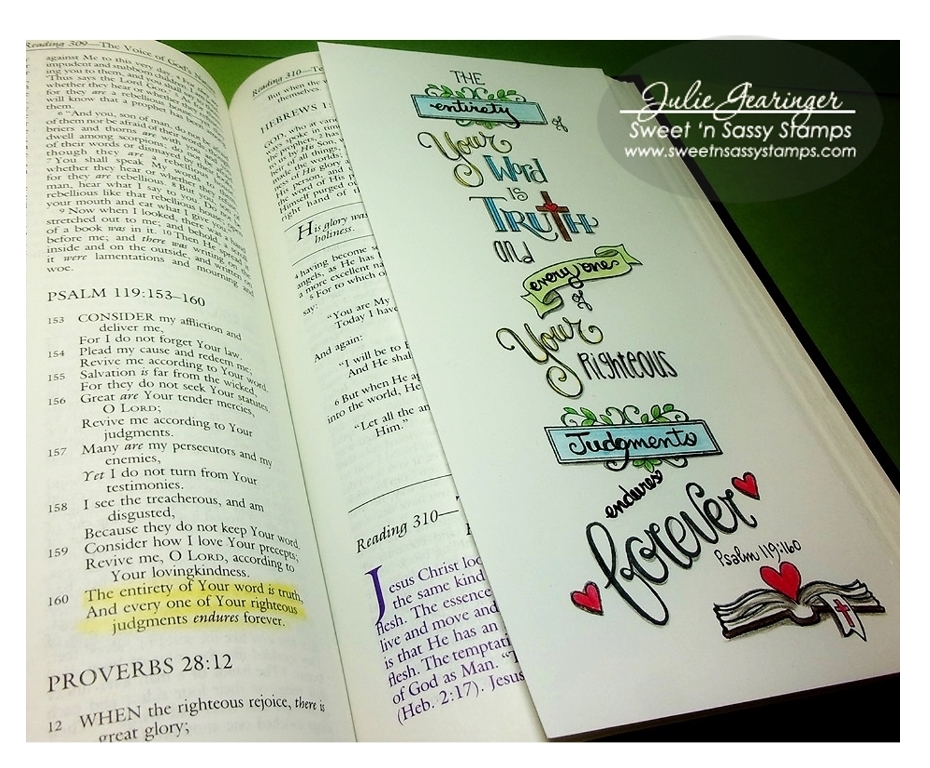 Reading 309—The Voice of God's
against Me to this very day.
impudent and stubborn children.
ing you to them, and you shall say to
'Thus says the Lord GOD.'
whether they hear or whether they
for they are a rebellious
will know that a prophet has been
them.
6 "And you, son of man, do not be
of them nor be afraid of their words,
briers and thorns are with you
dwell among scorpions; do not
of their words or dismayed
though they are a rebellious
7 You shall speak My words
whether they hear or whether
for they are rebellious. 8 But you,
man, hear what I say to you. Do not
rebellious like that rebellious house;
your mouth and eat what I give you."
9 Now when I looked, there was
stretched out to me; and behold, a scroll
of a book was in it. 10 Then He spread
before me; and there was writing on
inside and on the outside, and written on
it were lamentations and mourning and
woe.
PSALM 119:153–160
153 CONSIDER my affliction and
deliver me,
For I do not forget Your law.
154 Plead my cause and redeem me;
Revive me according to Your word.
155 Salvation is far from the wicked,
For they do not seek Your statutes.
156 Great are Your tender mercies,
O LORD;
Revive me according to Your
judgments.
157 Many are my persecutors and my
enemies,
Yet I do not turn from Your
testimonies.
158 I see the treacherous, and am
disgusted,
Because they do not keep Your word.
159 Consider how I love Your precepts;
Revive me, O LORD, according to
Your lovingkindness.
160 The entirety of Your word is truth,
And every one of Your righteous
judgments endures forever.
PROVERBS 28:12
12 WHEN the righteous rejoice, there is
great glory;
Reading 310—
But when the
themselves.
HEBREWS 1:
GOD, who at
spoke in
the prophets, 2 has
by His Son,
of all things,
the worlds;
ness of His glory
His person, and
the word of His
Himself purged
right hand of
His glory was
holiness.
4 having become so
angels, as He has
a more excellent
5 For to which of
say:
"You are My
Today I have
And again:
"I will be to
And He shall
6 But when He
into the world, He
"Let all the
Him."
Reading 310—
Jesus Christ
the same kind
flesh. The essence
live and move and
is that He has an
flesh. The
of God as Man. "
(Heb. 2:17). Jesus
THE
entirety
of
Your
Word
IS
TRUTH
and
every one
of
Your
Righteous
Judgments
endures
forever
Psalm 119:160
Julie Gearinger
Sweet 'n Sassy Stamps
www.sweetnsassystamps.com